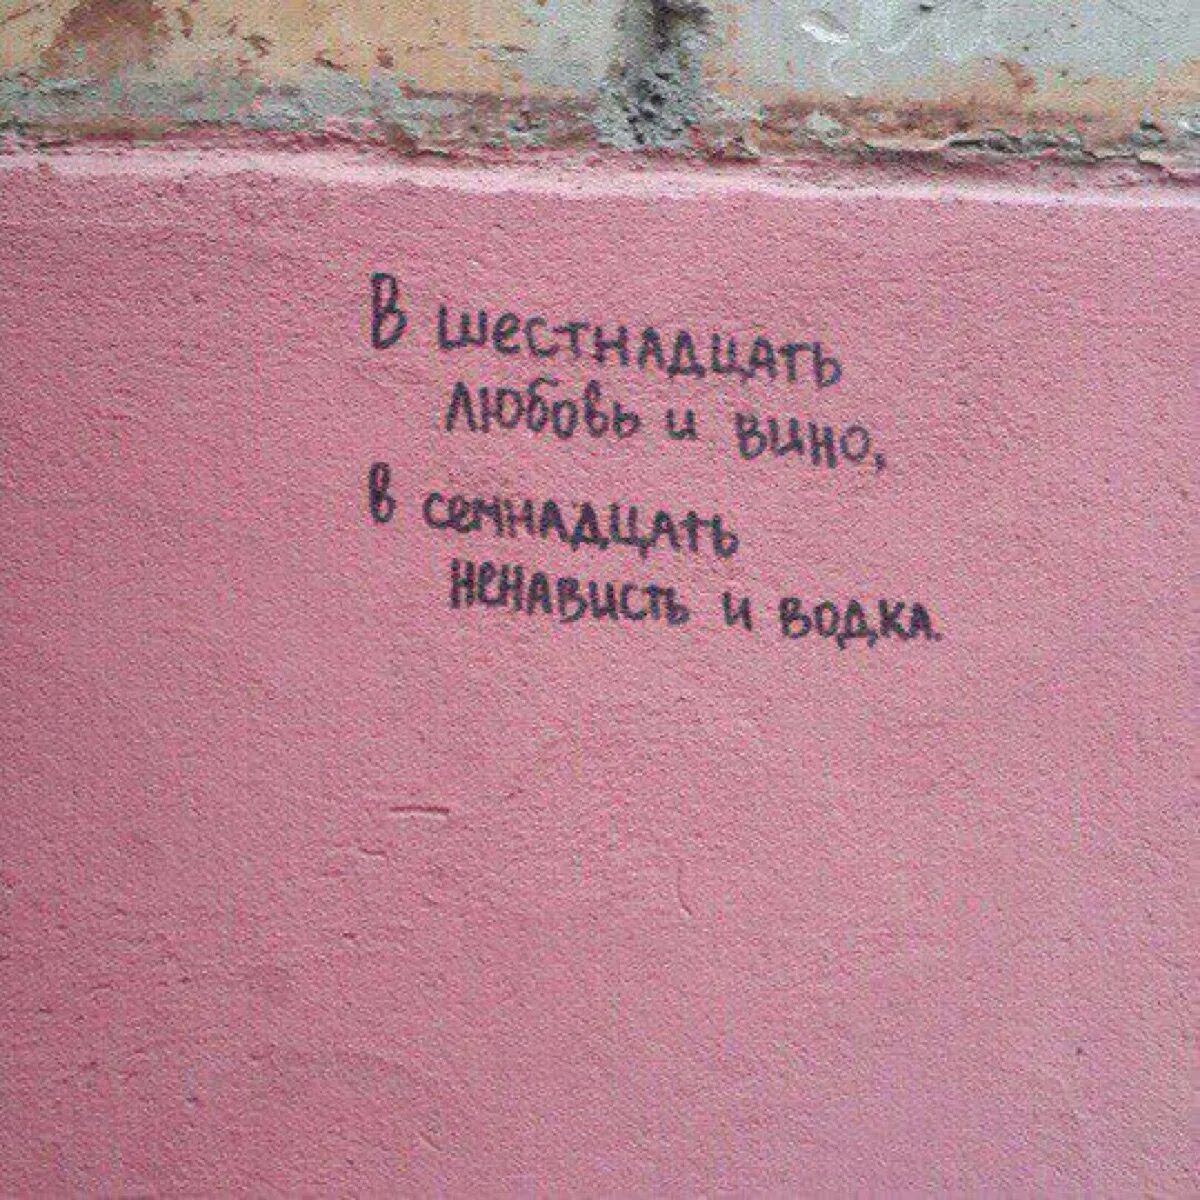 В шестнадцать
любовь и вино,
в семнадцать
ненависть и водка.